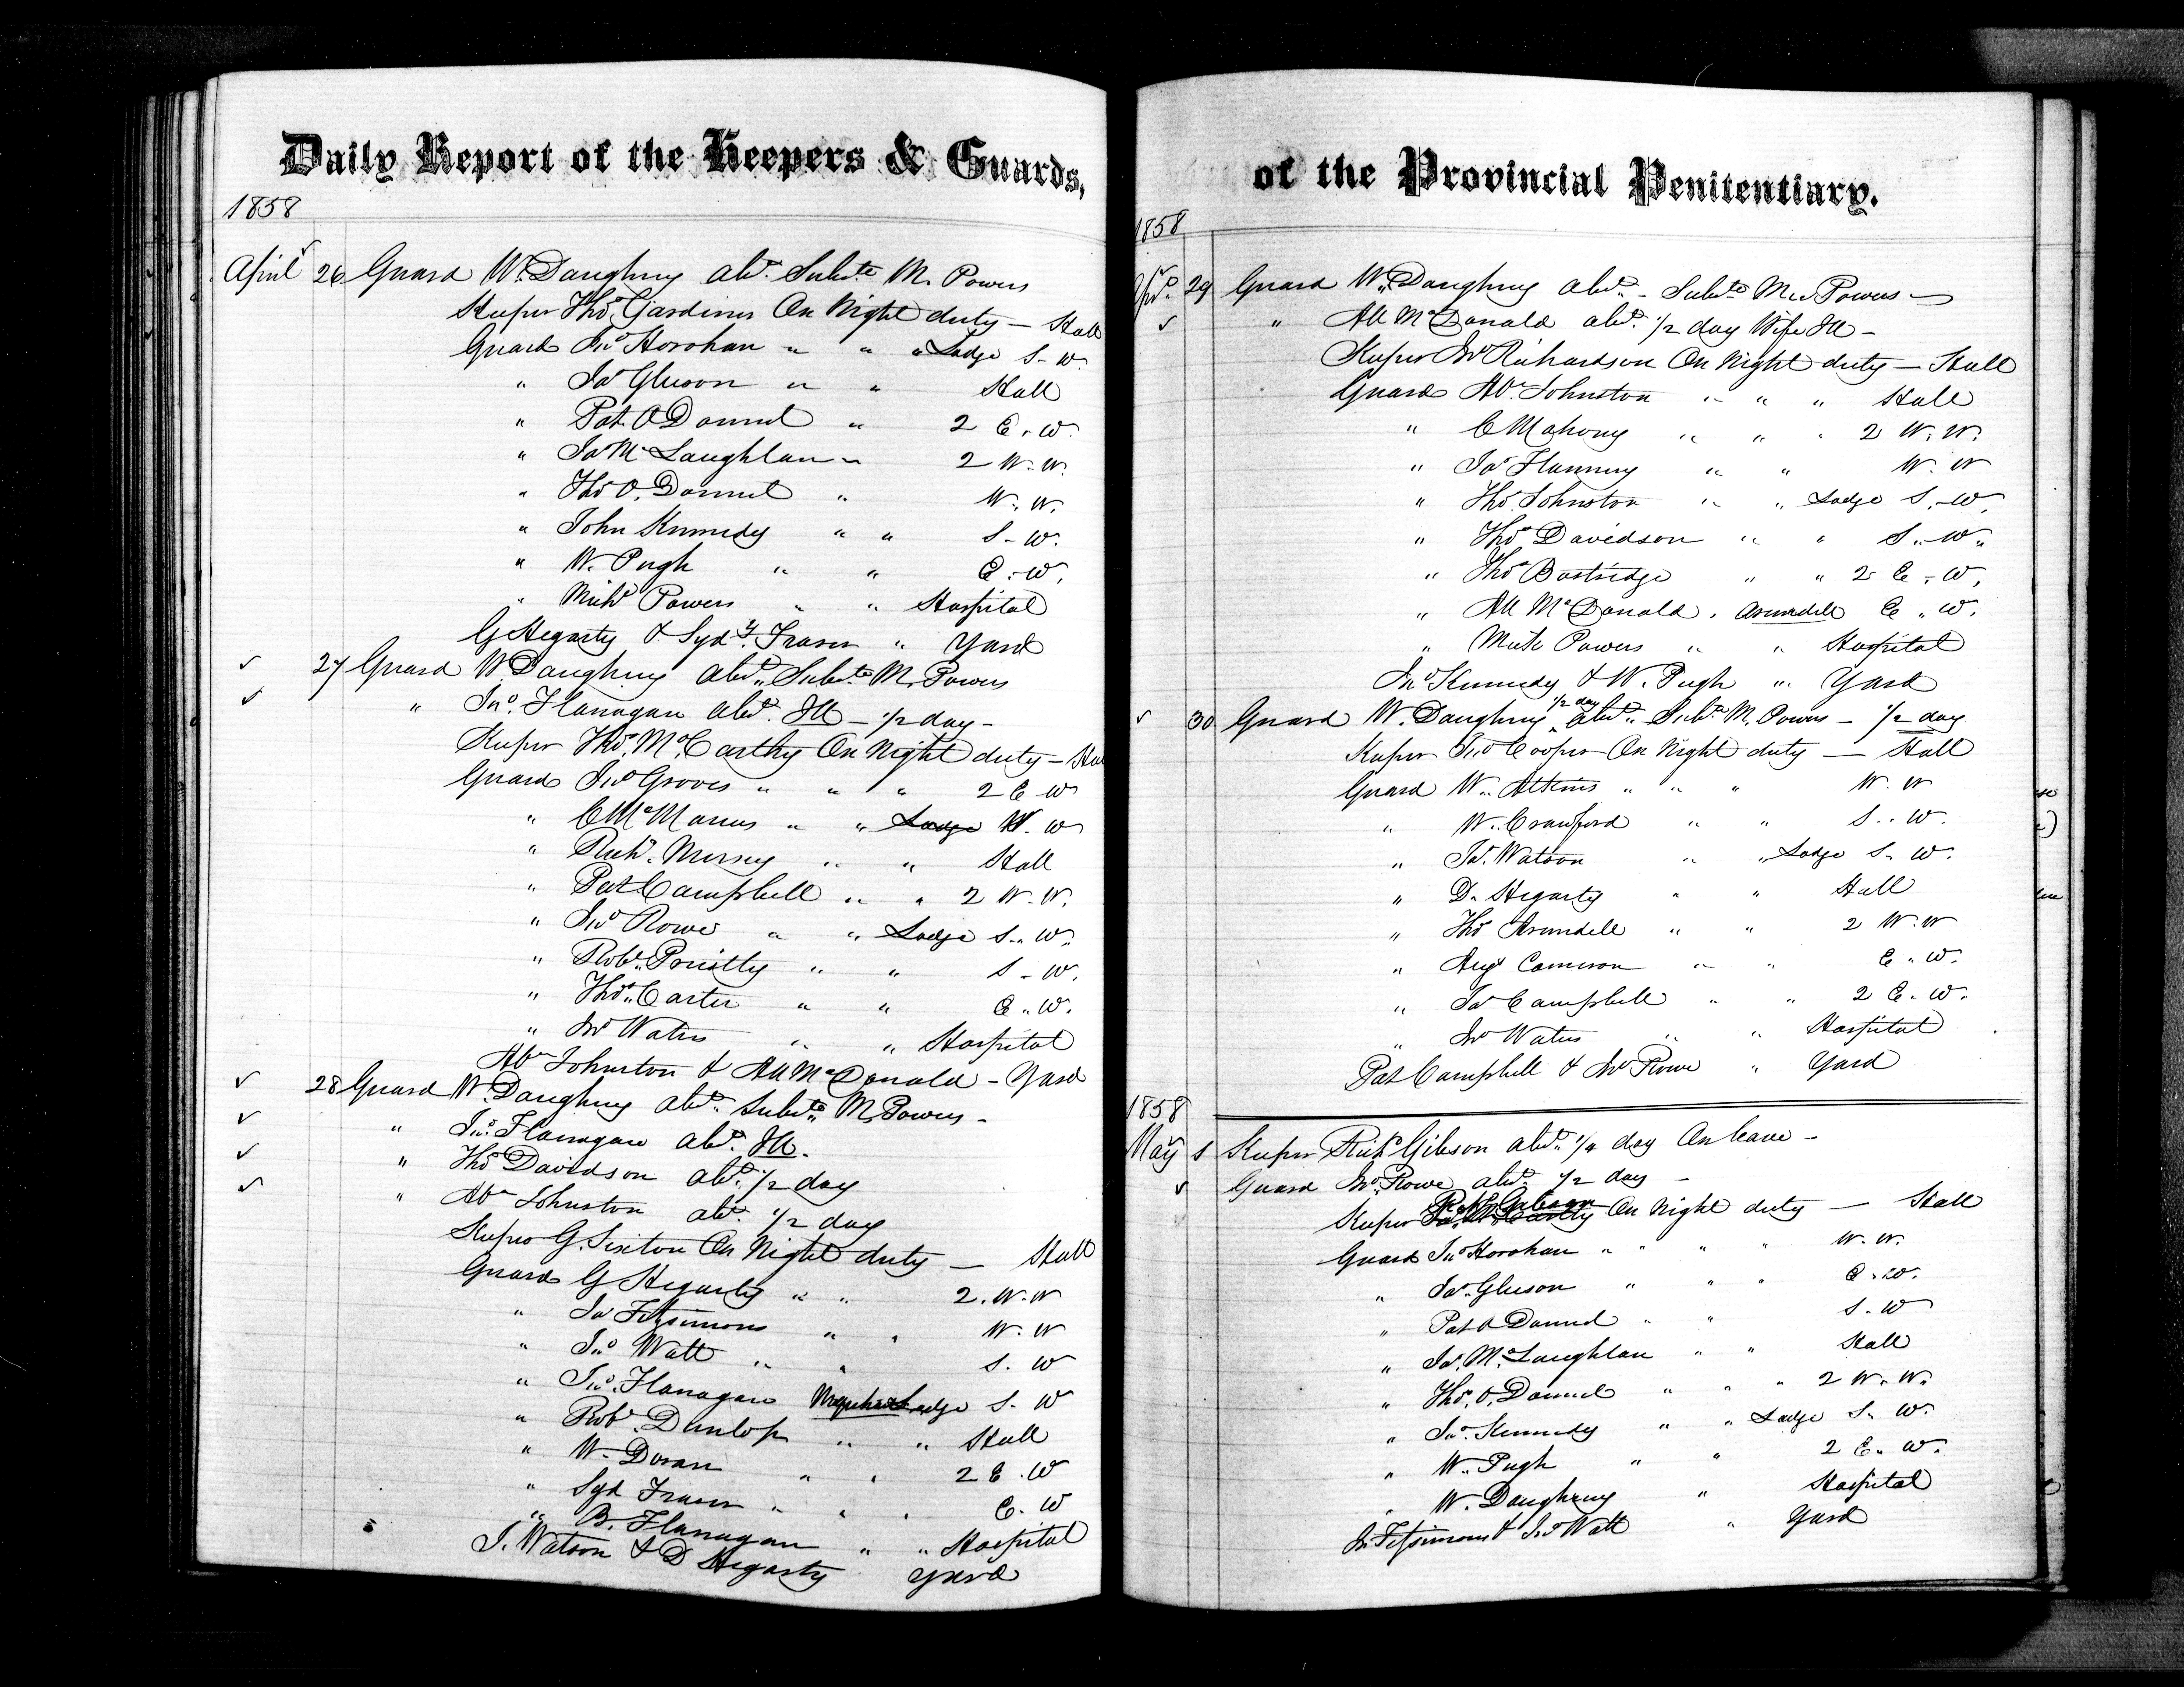 Daily Report of the Keepers & Guards,
1858
April 26 Guard W. Daughny abt. Subte. M. Powers
Keeper Thos. Gardiner On Night duty — Hall
Guard Jno Horohan " " " Lodge S - W.
" Jas Gleeson " " Hall
" Pat. O Donnel " 2 E. W.
" Jas McLaughlan " 2 W. W.
" Thos O. Donnel " W. W.
" John Kennedy " " S - W.
" W. Pugh " " E. W.
" Michl Powers " " Hospital
G Hegarty & Sydy. Fraser " Yard
27 Guard W. Daughny abt. Subte. M. Powers
" Jno. Flanagan abt. Ill - 1/2 day -
Keeper Thos. McCarthy On Night duty - Hall
Guard Jno Groves " " " 2 E W
" C McManus " " Lodge W. W
" Richd. Mersey " " Hall
" Pat Campbell " " 2 W. W.
" Jno Rowe " " Lodge S. W.
" Robt. Priestly " " S - W.
" Thos. Carter " " E. W.
" Jno Waters " " Hospital
Abm Johnston & All McDonald - Yard
28 Guard W. Daughny abt. Subte. M. Powers -
" Jno. Flanagan abt. Ill.
" Thos Davidson abt. 1/2 day
" Abm Johnston abt. 1/2 day
Keeper G. Sexton On Night duty — Hall
Guard G Hegarty " " 2. W. W
" Jas Fitzsimons " " W. W
" Jno Watt " " S. W
" Jno. Flanagan Urquhart Lodge S. W
" Robt. Dunlop " " Hall
" W. Doran " " 2 E. W
" Syd Fraser " " " E. W
" B. Flanagan " " Hospital
J. Watson & D Hegarty Yard
of the Provincial Penitentiary.
1858
Apl. 29 Guard W. Daughny abt. - Subte M. Powers —
" All McDonald abt. 1/2 day Wife Ill -
Keeper Jno Richardson On Night duty — Hall
Guard Abm Johnston " " " Hall
" C Mahony " " " 2 W. W.
" Jas Flannery " " W. W
" Thos. Johnston " " Lodge S. W.
" Thos Davidson " " S. W.
" Thos Bostridge " " 2 E. W.
" All McDonald. Arundell E. W.
" Mick Powers " " Hospital
Jno Kennedy & W. Pugh " Yard
30 Guard W. Daughny 1/2 day abt. Subte. M. Powers - 1/2 day
Keeper Jno Cooper On Night duty — Hall
Guard W. Atkins " " " W. W
" W. Crawford " " S. W.
" Jas. Watson " " Lodge S. W.
" D. Hegarty " " Hall
" Thos Arundell " " 2 W. W
" Augs Cameron " " E. W.
" Jas Campbell " " 2 E. W.
" Jno Waters " " Hospital
Pat Campbell & Jno Rowe " Yard
1858
May 1 Keeper Richd Gibson abt. 1/4 day On leave -
Guard Jno. Rowe abt. 1/2 day -
Richd Gibson
Keeper Thos McCarthy On Night duty — Hall
Guard Jno Horohan " " " " W. W.
" Jas. Gleeson " " " E. W.
" Pat O Donnel " " S. W
" Jas. McLaughlan " " Hall
" Thos. O. Donnel " " " 2 W. W.
" Jno. Kennedy " " Lodge S. W.
" W. Pugh " " 2 E. W.
" W. Daughny " Hospital
Jas Fitzsimons & Jno Watt " Yard